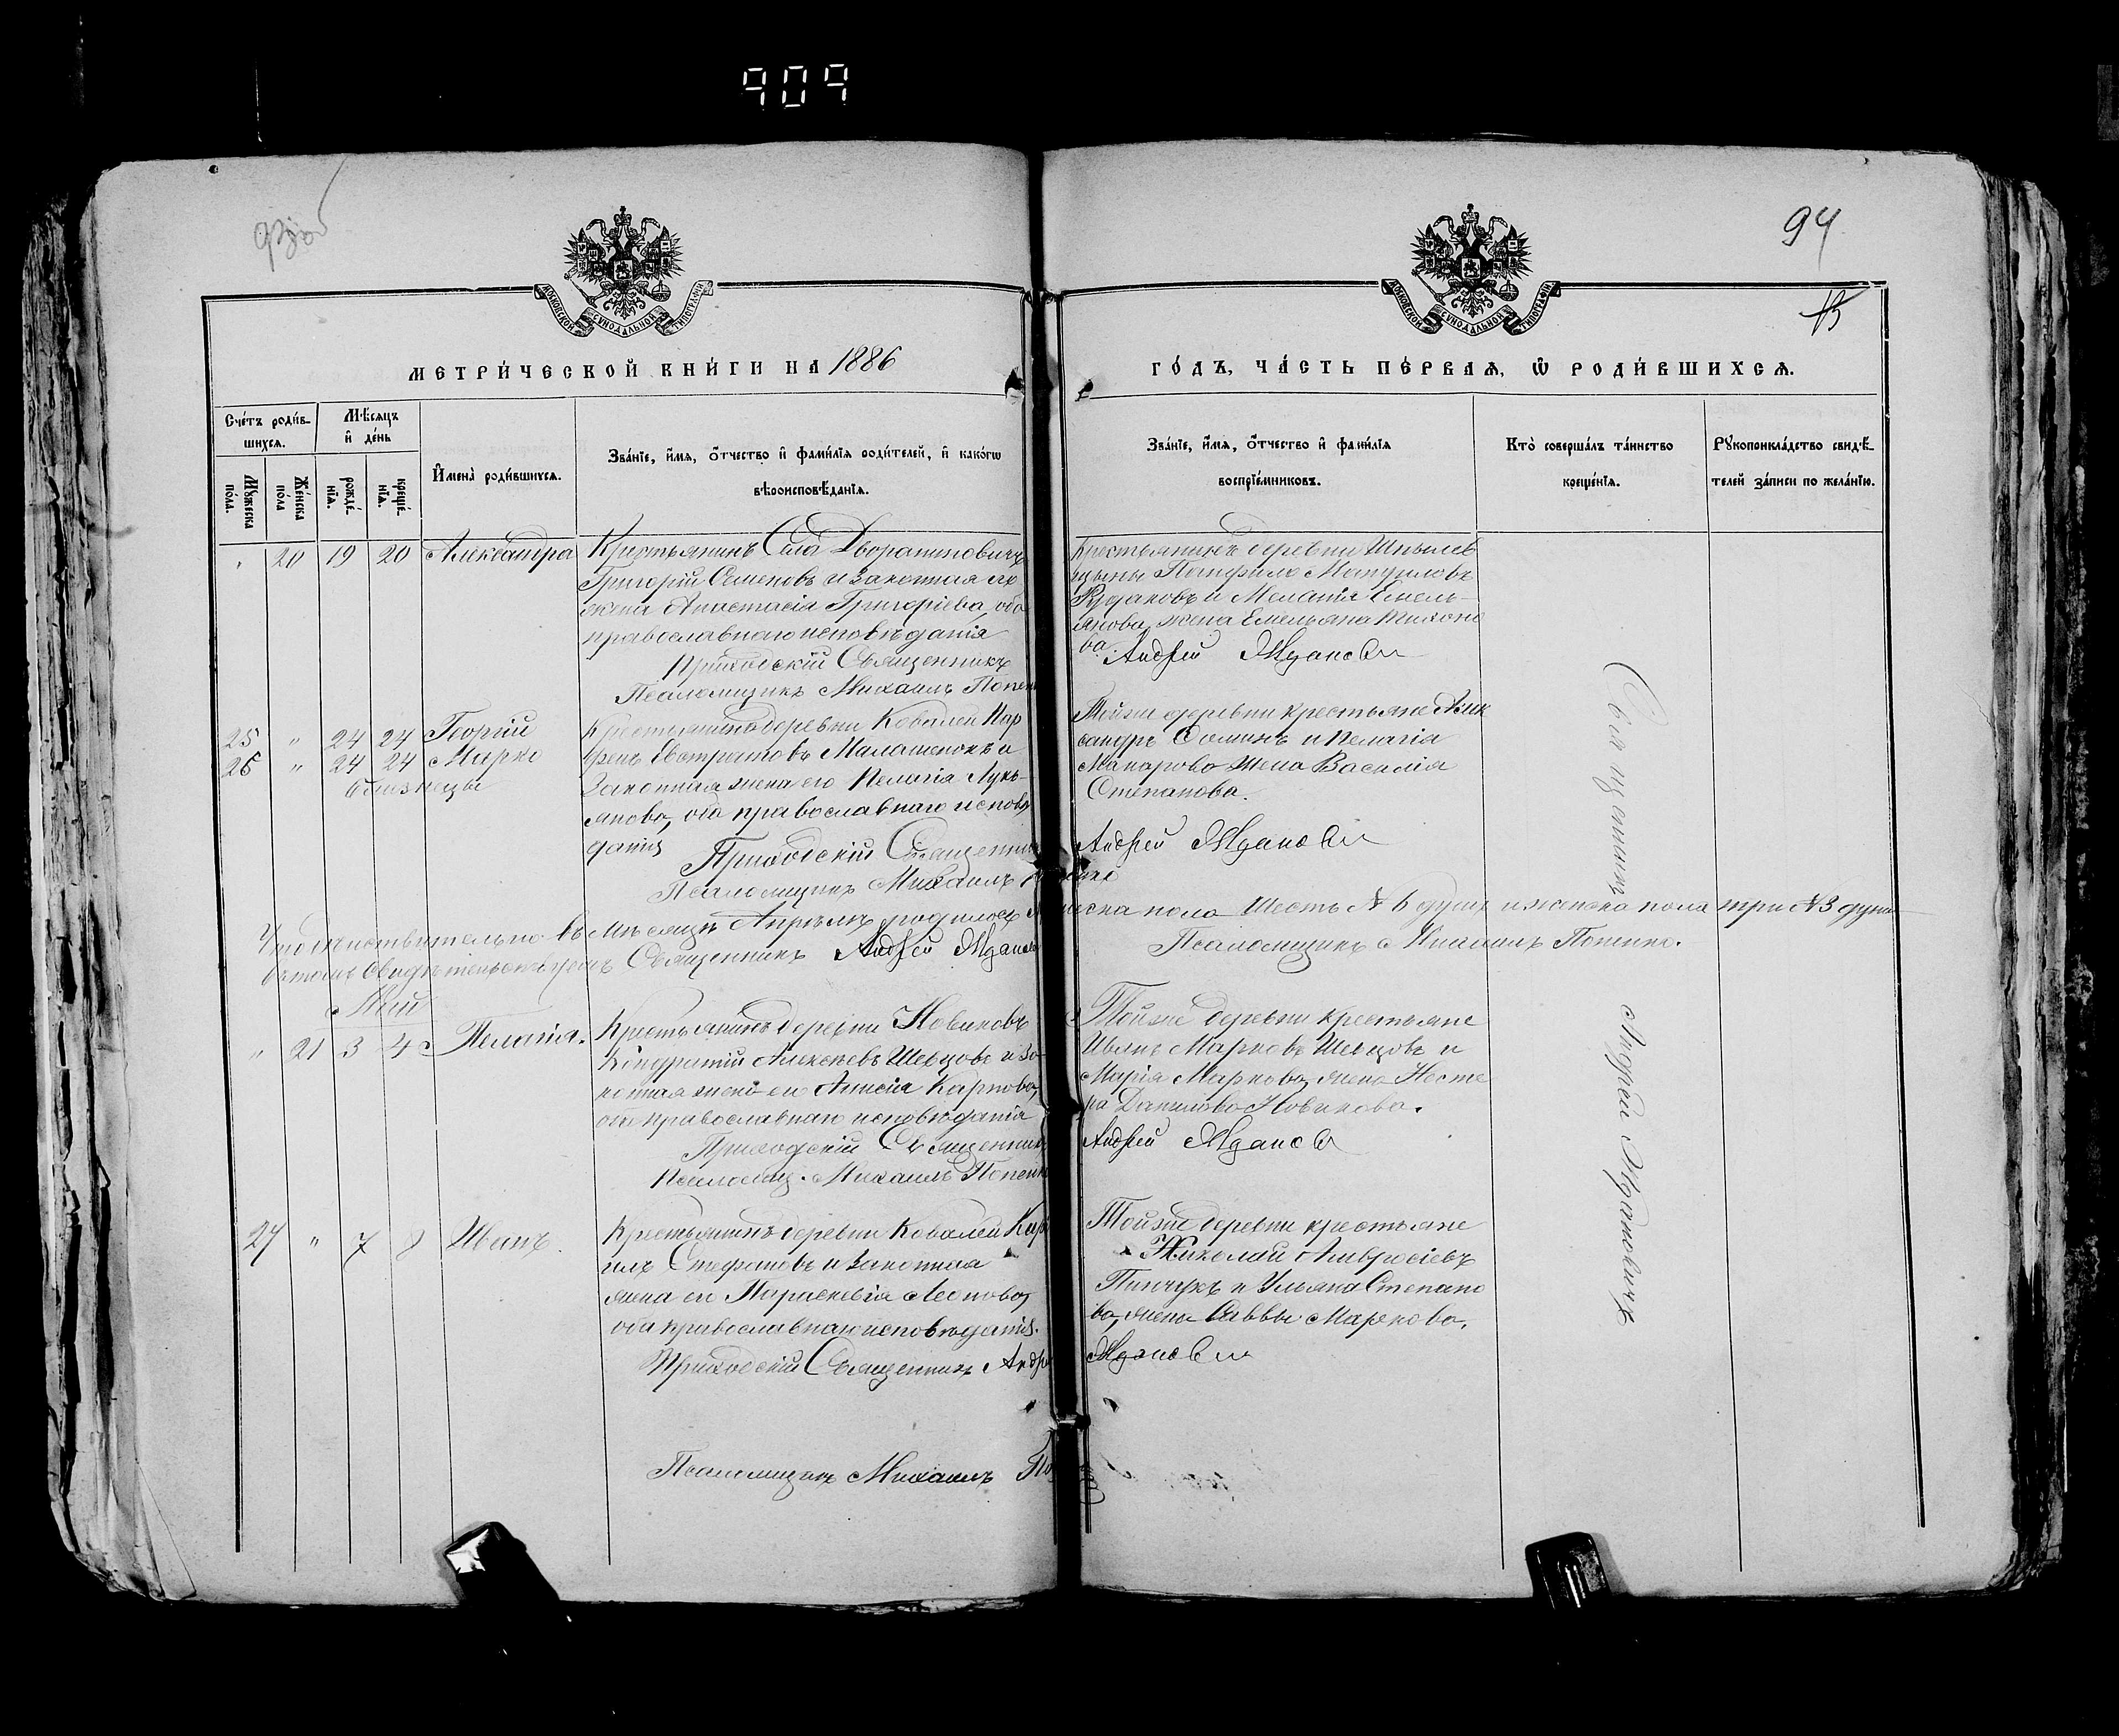 909
94
МОСКОВСКОЙ СУНОДАЛЬНОЙ ТИПОГРАФІИ
МОСКОВСКОЙ СУНОДАЛЬНОЙ ТИПОГРАФІИ
МЕТРИ́ЧЕСКОЙ КНИ́ГИ НА 1886
ГО́ДЪ, ЧА́СТЬ ПЕ́РВАѦ, Ѽ РОДИ́ВШИХСѦ.
Сче́тъ роди́в-
шихсѧ.
Мѣ́сѧцъ
и҆ де́нь
Мꙋ́жеска
по́ла.
Же́нска
по́ла
рожде́-
нїѧ.
креще́-
нїѧ.
И҆мена̀ роди́вшихсѧ.
Зва́нїе, и҆́мѧ, ѻ҆́тчество и҆ фами́лїѧ роди́телей, и҆ како́гѡ
вѣроисповѣ́данїѧ.
Зва́нїе, и҆́мѧ, ѻ҆́тчество и҆ фами́лїѧ
воспрїе́мниковъ.
Кто̀ соверша́лъ та́инство
креще́нїѧ.
Рꙋкоприкла́дство свидѣ́-
телей за́писи по жела́нїю.
20 19 20 Александра
Крестьянинъ Села Дворашновичъ
Григорій Семеновъ и законная его
жена Анастасія Григоріева, оба
православнаго исповѣданія
Приходскій Священникъ
Псаломщикъ Михаилъ Попен
Крестьянинъ деревни
Памфилъ
и Меланія Емель-
янова, жена Емельяна Тихоно
ва.
Андрей Ждановичъ
25 " 24 24 Георгій
26 " 24 24 Марко
близнецы
Крестьянинъ деревни Ковалей Кар
Евстратовъ Маламенокъ и
Законная жена его Пелагія Лукь-
янова, оба православнаго исповѣ
данія
Приходскій Священни
Псаломщикъ Михаилъ Попенко
Тойже деревни крестьяне Алек
сандръ Фоминъ и Пелагія
Макарова жена Василія
Степанова.
Андрей Ждановичъ
Что дѣйствительно въ мѣсяцѣ Апрѣлѣ родилось мужеска пола шесть №6 душъ и женска пола три №3 души
въ томъ свидѣтельствуемъ Священникъ Андрей Жданов Псаломщикъ Михаилъ Попенко.
Май
" 21 3 4 Пелагія.
Крестьянинъ деревни Новиковъ
Кондратій Алексѣевъ Шевцовъ и за-
конная жена его Анисія Карпова,
оба православнаго исповѣданія
Приходскій Священникъ
Псаломщ. Михаилъ Попенк
Тойже деревни крестьяне
Иванъ Марковъ Шевцовъ и
Марія Маркова, жена Несте
ра Данилова Новикова.
Андрей Жданов
27 " 7 8 Иванъ.
Крестьянинъ деревни Ковалей Кир
илъ Стефановъ и законная
жена его Параскевія Леонова,
оба православнаго исповѣданія.
Приходскій Священникъ Андре
Псаломщикъ Михаилъ По
Тойже деревни крестьяне
Николай Амвросіевъ
Пинчукъ и Ульяна Степано
ва, жена Саввы Маркова.
Ждановичъ
Священникъ
Андрей Ждановичъ